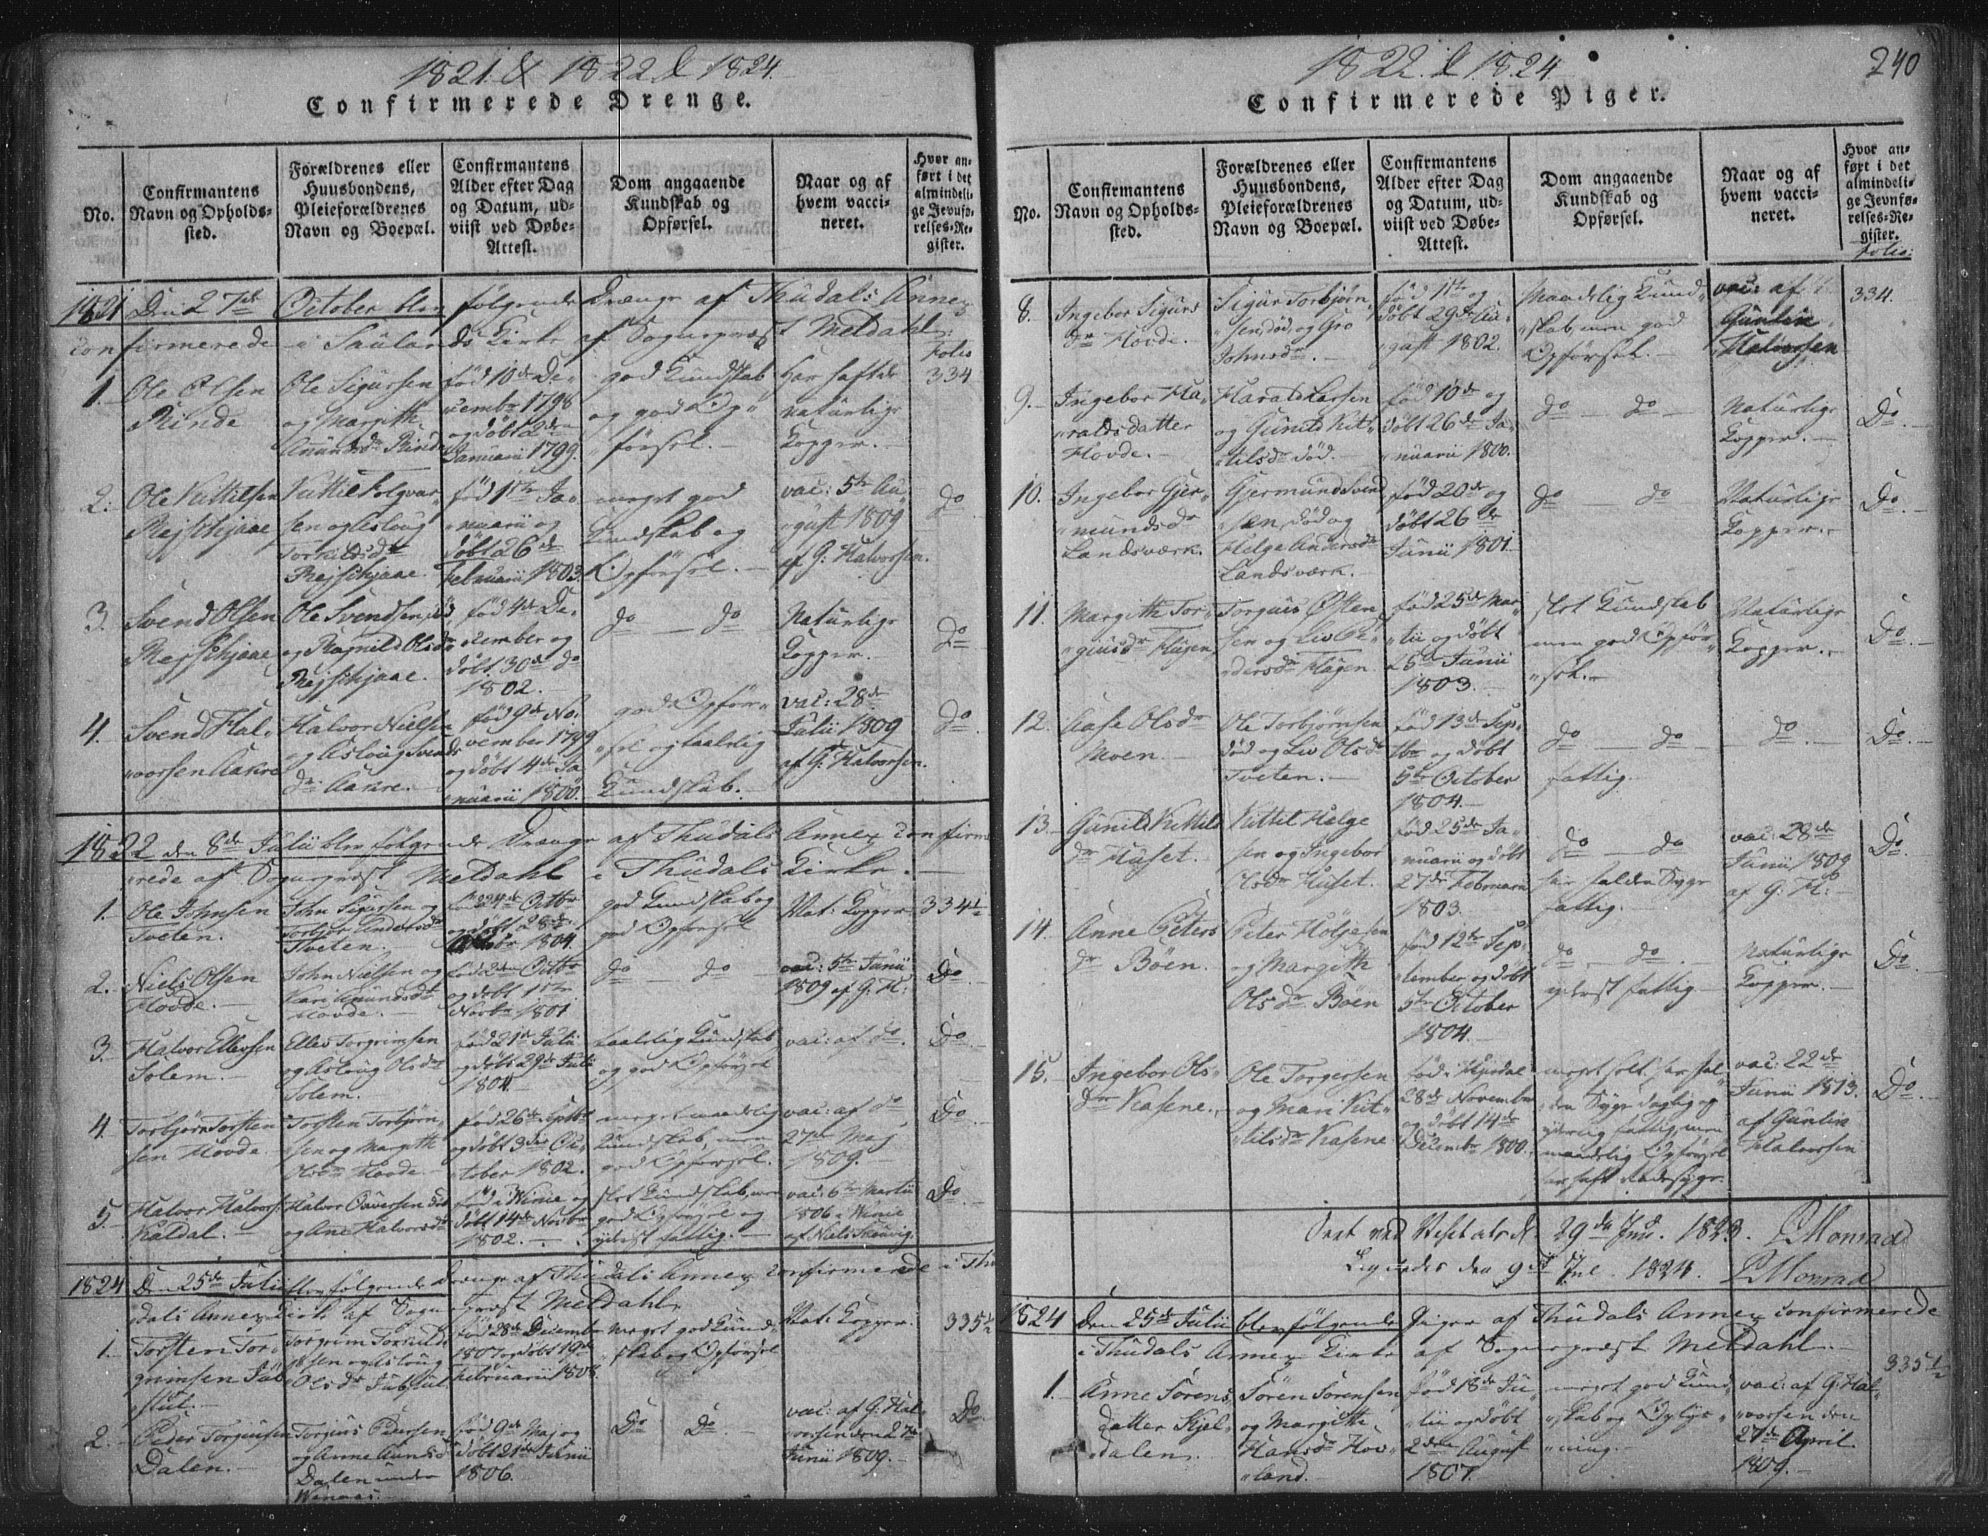 1821. & 1822 & 1824.
Confirmerede Drenge.
No.
Confirmantens
Navn og Opholds-
sted.
Forældrenes eller
Huusbondens,
Pleieforældrenes
Navn og Boepæl.
Confirmantens
Alder efter Dag
og Datum, ud-
viist ved Døbe-
Attest.
Dom angaaende
Kundskab og
Opførsel.
Naar og af
hvem vacci-
neret.
Hvor an-
ført i det
almindeli-
ge Jevnfø-
relses-Re-
gister.
1821 Den 27de October blev følgende Drenge af Thudals Annex
confirmerede i Saulands Kirke af Sogneprest Meldahl.
Folio
1.
Ole Olsen
Rinde
Ole Sigursen
og Margith
Anundsdr Rinde
fød 10de De-
cembr 1798
og døbt 2den
Januarii 1799.
god Kundskab
og god Op-
førsel.
Har hafte
naturlige
Kopper.
334
2.
Ole Kittilsen
Rejschjaae
Kittil Folqvar-
sen og Asloug
Torkildsdr
Rejschjaae.
fød 1ste Ja-
nuarii og
døbt 26de
Februarii 1803.
meget god
Kundskab og
Opførsel.
vac: 5te Au-
gust 1809
af G. Halvorsen.
do
3.
Svend Olsen
Rejschjaae
Ole Svendsen
og Ragnild Olsdr
Rejschjaae.
fød 4de De-
cember og
døbt 30de do
1802.
do — do
Naturlige
Kopper.
do
4.
Svend Hal-
vorsen Aakre
Halvor Nielsen
og Asloug Svends
dr Aakre.
fød 9de No-
vember 1799
og døbt 4de Ja-
nuarii 1800.
god Opfør-
sel og taalelig
Kundskab.
vac: 28de
Julii 1809
af G. Halvorsen.
do
1822 den 8de Julii blev følgende Drenge af Thudals Annex confirme-
rede af Sogneprest Meldahl i Thudals Kirke.
1.
Ole Johnsen
Tveten.
John Sigursen og
Torbjør Andersdr
Tveten.
fød 24de Octbr
og døbt 28de
Octobr 1804.
god Kundskab og
god Opførsel
Nat: Kopper
334½
2.
Niels Olsen
Hovde.
John Nielsen og
Kari Anundsdr
Hovde.
fød 2den Octbr
og døbt 1ste
Novbr 1801
do — do
vac: 5te Junii
1809 af G. H:
Do
3.
Halvor Ellevsen
Solem.
Ellev Torgrimsen
og Aslaug Olsdr
Solem.
fød 21de Julii
og døbt 29de Julii
1804.
taalelig Kundskab
og god Opførsel
vac: af do.
Do
4.
Torbjørn Torsten
sen Hovde.
Torsten Torbjørn-
sen og Margith
Olsdr Hovde.
fød 26de Septbr
og døbt 3die Oc-
tober 1802.
meget maadelig
Kundskab, men
god Opførsel.
vac: af do
27de Maj
1809.
Do
5.
Halvor Halvors
Kaldal.
Halvor Ouversen
og Ane Halvorsdr
fød i Winie og
døbt 14de Novbr
1802.
slet Kundskab, men
god Opførsel og
yderst fattig.
vac: 6te Martii
1806 i Winie
af Niels
Do
1824 Den 25de Julii blev følgende Drenge af Thudals Annex confirmerede i Thu-
dals Annex Kirke af Sogneprest Meldahl.
1.
Torsten Tor-
grimsen
Torgrim Torkild-
sen og Aslaug
Olsdr
fød 28de Decembr
1807 og døbt 19de
Februarii 1808.
meget god Kund-
skab og Opførsel
Nat: Kopper.
335½
2.
Peder Torjusen
Dalen.
Torgius Pedersen
og Anne Aunds
Dalen under
Winaas.
fød 9de Maj og
døbt 21de Junii
1806.
Do Do
vac: af G. Hal-
vorsen den 27de
Junii 1809.
Do
1822. & 1824
240
Confirmerede Piger.
No.
Confirmantens
Navn og Opholds-
sted.
Forældrenes eller
Huusbondens,
Pleieforældrenes
Navn og Boepæl.
Confirmantens
Alder efter Dag
og Datum, ud-
viist ved Døbe-
Attest.
Dom angaaende
Kundskab og
Opførsel.
Naar og af
hvem vacci-
neret.
Hvor an-
ført i det
almindeli-
ge Jevnfø-
relses-Re-
gister.
Folio:
8.
Ingebor Sigurs
dr Hovde.
Sigur Torbjørn-
sen død og Gro
Johnsdr.
fød 1ste og
døbt 29de Au-
gust 1802.
Maadelig Kund-
skab, men god
Opførsel.
vac: af
Gunlin
Halvorsen
334.
9.
Ingebor Ha-
raldsdatter
Hovde.
Harald Larsen
og Gunild Kit-
tilsdr død.
fød 10de og
døbt 26de Ja-
nuarii 1800.
do — do
Naturlige
Kopper.
Do
10.
Ingebor Gjer-
mundsdr
Landsværk.
Gjermund Svend
sen, død og
Helge Andersdr
Landsværk.
fød 20de og
døbt 26de
Junii 1801.
do — do
Naturlige
Kopper.
Do
11.
Margith Tor-
giusdr Hagen
Torgius Østen
sen og Liv An-
dersdr Hagen.
fød 25de Mar-
tii og døbt
25de Junii
1803.
slet Kundskab
men god Opfør-
sel.
Naturlige
Kopper.
Do
12.
Aase Olsdr
Moen.
Ole Torbjørnsen
død og Liv Olsdr
Tveten.
fød 13de Sep-
tbr og døbt
5te October
1804.
do — do
fattig.
do
Do
13.
Gunild Kittils
dr Huset.
Kittil Helge
sen og Ingebor
Olsdr Huset.
fød 25de Ja-
nuarii og døbt
27de Februarii
1803.
do — do
har falden Syge
fattig.
vac: 28de
Junii 1809
af G. H:
Do
14.
Anne Peters
dr Bøen.
Peter Holgesen
og Margith
Olsdr Bøen
fød 12te Sep-
tember og døbt
5te October
1804.
do — do
yderst fattig
Naturlige
Kopper.
Do
15.
Ingebor Ols-
dr Kasene.
Ole Torgersen
og Mari Kit-
tilsdr Kasene
fød i Hjerdal
28de November
og døbt 14de
Decembr 1800.
meget slet, har fal-
den Syge daglig og
yderlig fattig, men
maadelig Opførsel
har haft Radesyge.
vac: 22de
Junii 1813.
af Gunlin
Halvorsen
Do
Seet ved Visitats d 29de Jun. 1823. PMonrad
Ligeledes den 9de Jul. 1824. PMonrad
1824 Den 25de Julii blev følgende Piger af Thudals Annex confirmerede
i Thudals Annex Kirke af Sogneprest Meldahl.
1.
Anne Sørens
datter Kjel-
dalen.
Søren Sørensen
og Margithe
Hansdr Hov-
land.
fød 18de Ju-
lii og døbt
2den August
1807.
meget god Kund-
skab og Oplys-
ning.
vac: af G. Hal-
vorsen den
27de April.
1809.
335½